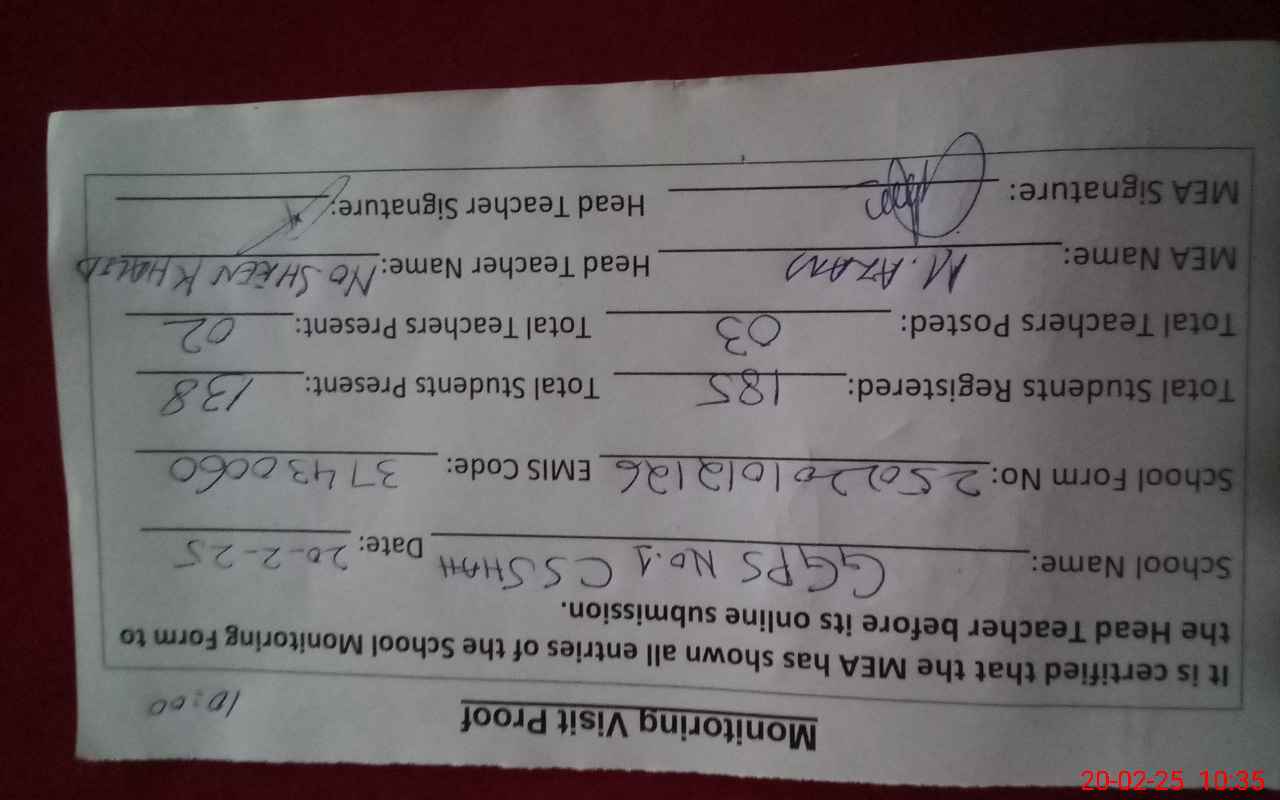 Monitoring Visit Proof
10:00
It is certified that the MEA has shown all entries of the School Monitoring Form to
the Head Teacher before its online submission.
School Name: GGPS No.1 CS SHAH Date: 20-2-25
School Form No: 250220101212126 EMIS Code: 37430060
Total Students Registered: 185 Total Students Present: 138
Total Teachers Posted: 03 Total Teachers Present: 02
MEA Name: M. AZAN Head Teacher Name: NOSHEEN KHALID
MEA Signature: Head Teacher Signature:
20-02-25 10:35